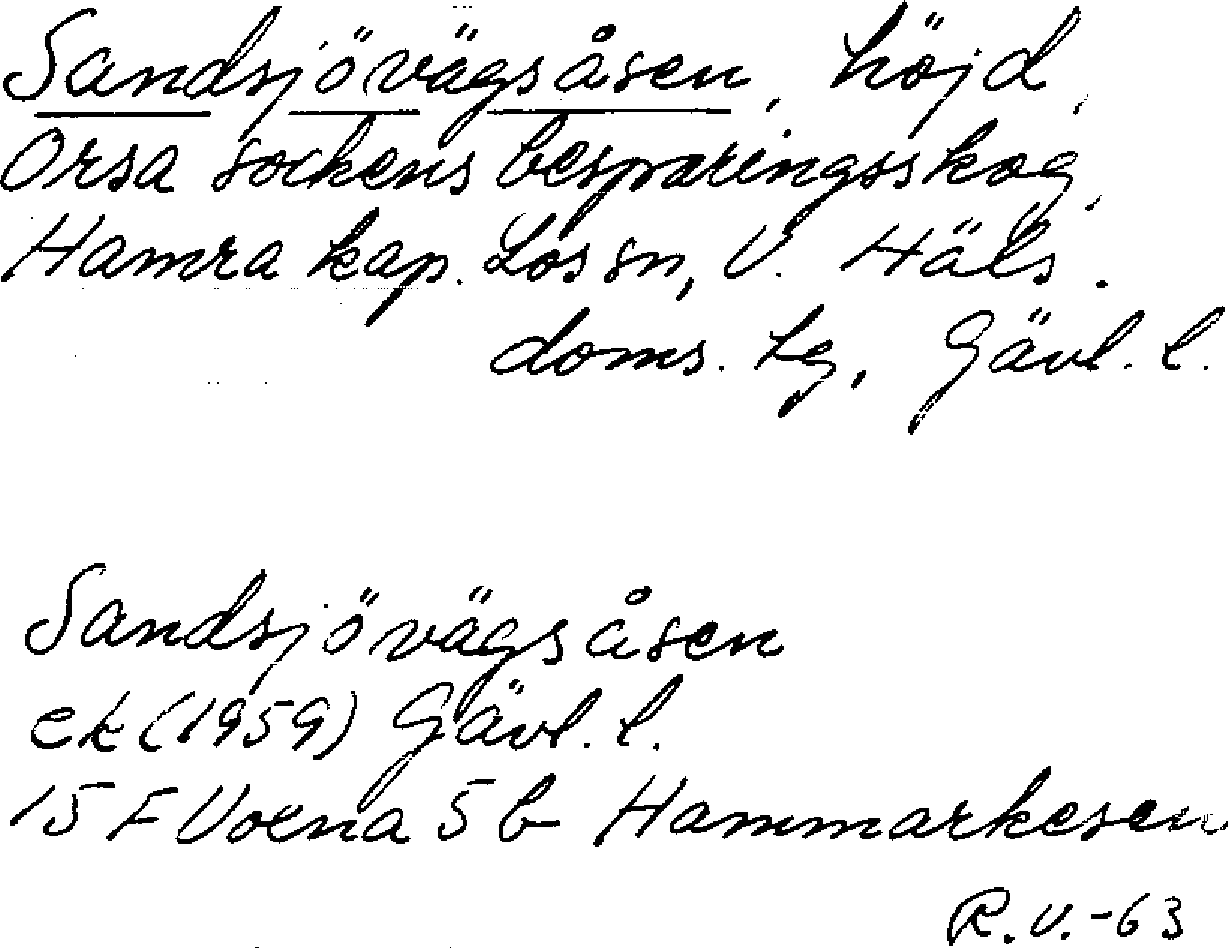 Sandsjövägsåsen, höjd,
Orsa sockens besparingsskog,
Hamra kap. Los sn, V. Häls.
doms. tg, Gävl. l.
Sandsjövägsåsen
ek (1959) Gävl. l.
15 F Voxna 5 b Hammarkesen
R.V.-63